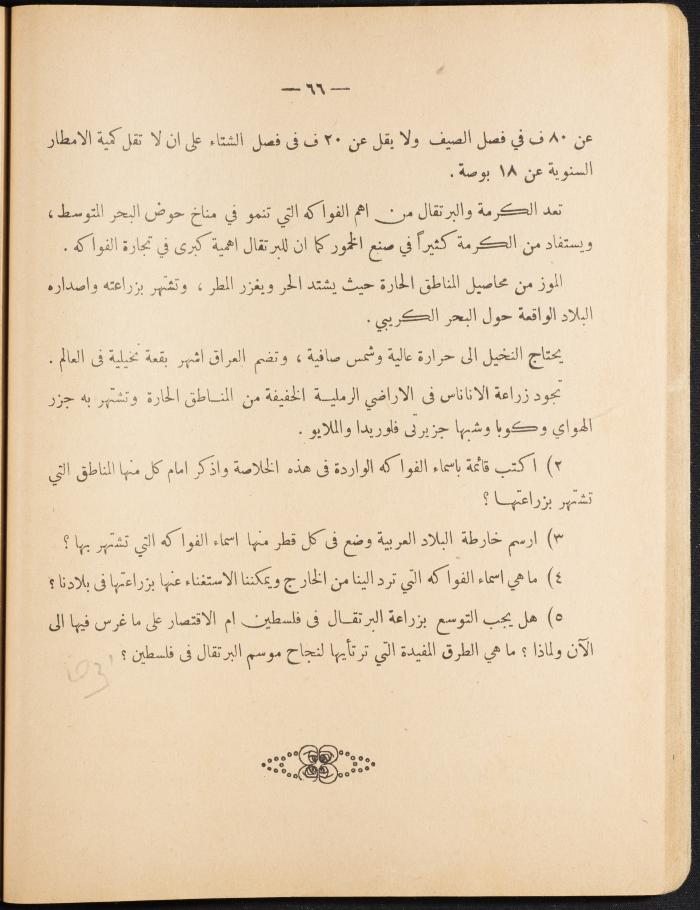 — ٦٦ —
عن ٨٠ ف في فصل الصيف ولا يقل عن ٢٠ ف فى فصل الشتاء على ان لا تقل كمية الامطار
السنوية عن ١٨ بوصة .
تعد الكرمة والبرتقال من اهم الفواكه التي تنمو في مناخ حوض البحر المتوسط ،
ويستفاد من الكرمة كثيراً في صنع الخمور كما ان للبرتقال اهمية كبرى في تجارة الفواكه .
الموز من محاصيل المناطق الحارة حيث يشتد الحر ويغزر المطر ، وتشتهر بزراعته واصداره
البلاد الواقعة حول البحر الكريبي .
يحتاج النخيل الى حرارة عالية وشمس صافية ، وتضم العراق اشهر بقعة نخيلية فى العالم .
تجود زراعة الاناناس فى الاراضي الرملية الخفيفة من المناطق الحارة وتشتهر به جزر
الهواي وكوبا وشبها جزيرتى فلوريدا والملايو .
٢) اكتب قائمة باسماء الفواكه الواردة فى هذه الخلاصة واذكر امام كل منها المناطق التي
تشتهر بزراعتها ؟
٣) ارسم خارطة البلاد العربية وضع فى كل قطر منها اسماء الفواكه التي تشتهر بها ؟
٤) ما هي اسماء الفواكه التي ترد الينا من الخارج ويمكننا الاستغناء عنها بزراعتها فى بلادنا ؟
٥) هل يجب التوسع بزراعة البرتقال فى فلسطين ام الاقتصار على ما غرس فيها الى
الآن ولماذا ؟ ما هي الطرق المفيدة التي ترتأيها لنجاح موسم البرتقال فى فلسطين ؟